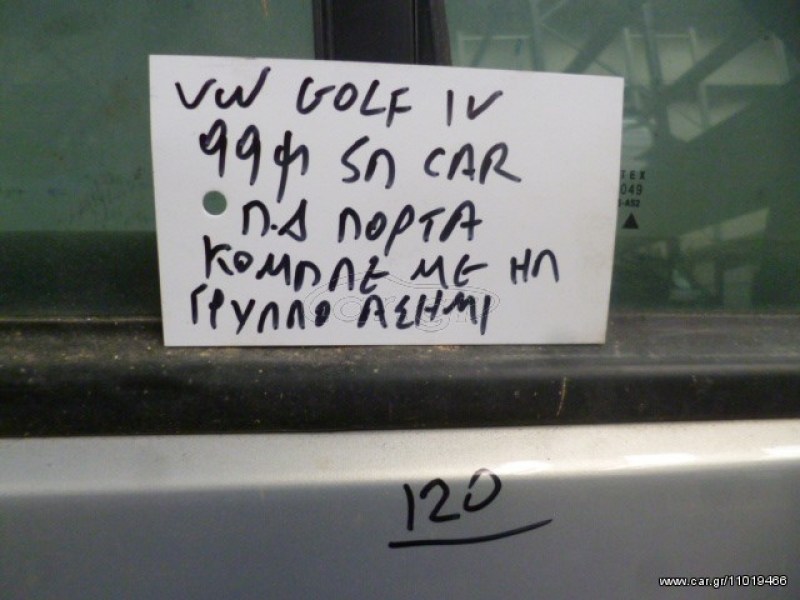 VW GOLF IV
99Φ 5Π CAR
Π.Δ ΠΟΡΤΑ
ΚΟΜΠΛΕ ΜΕ ΗΛ
ΓΡΥΛΛΟ ΑΣΗΜΙ
120
049
www.car.gr/11019466